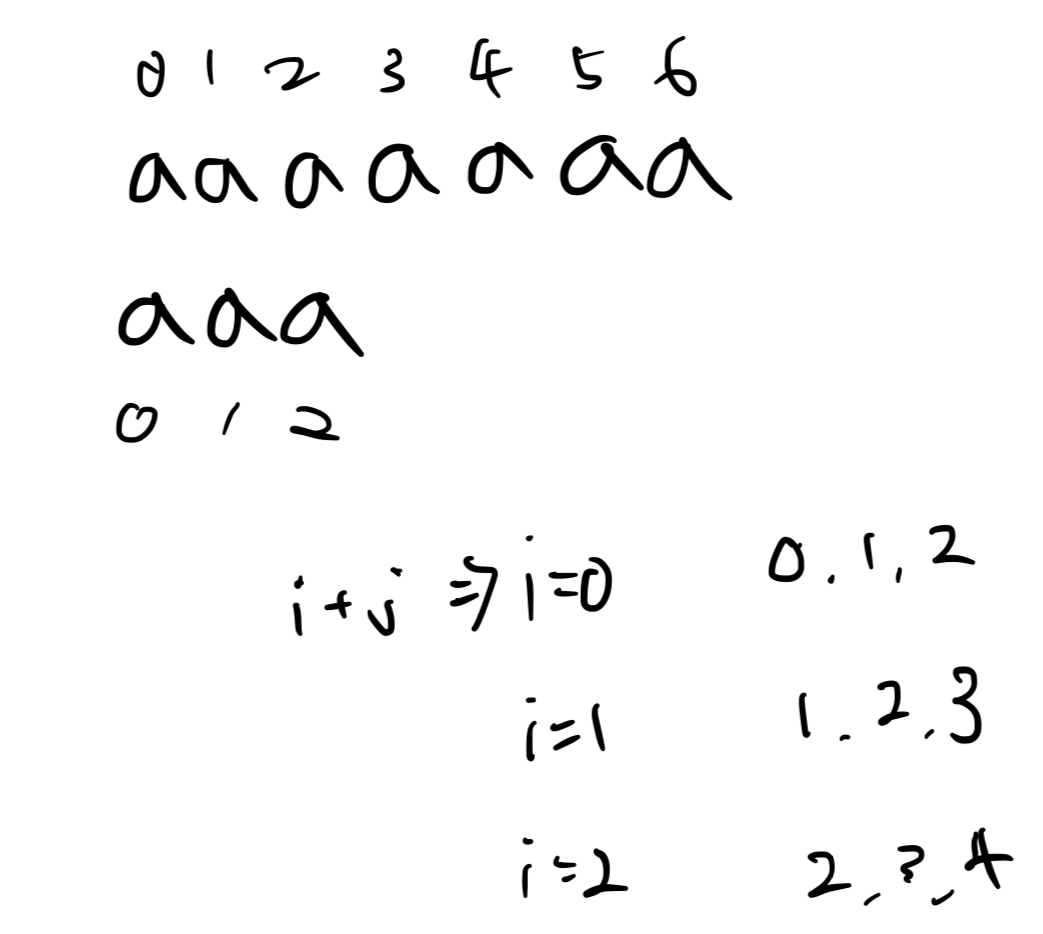 0 1 2 3 4 5 6
aaaaaaa
aaa
0 1 2
i+j => i=0 0,1,2
i=1 1,2,3
i=2 2,3,4